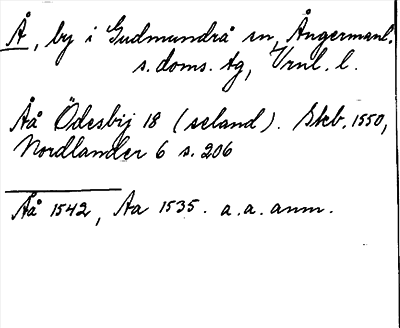 Å, by i Gudmundrå sn, Ångermanl.
s. doms. tg, Vrnl. l.
Åå Ödesbij 18 (seland). Skb. 1550,
Nordlander 6 s. 206
Åå 1542, Aa 1535. a. a. anm.